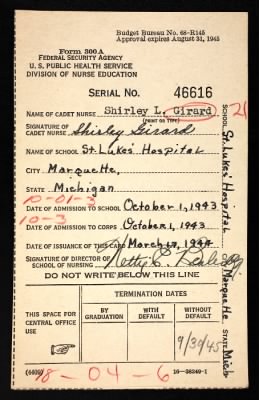 Budget Bureau No. 68-R145
Approval expires August 31, 1945
Form 300A
FEDERAL SECURITY AGENCY
U. S. PUBLIC HEALTH SERVICE
DIVISION OF NURSE EDUCATION
SERIAL NO. 46616
NAME OF CADET NURSE Shirley L. Girard
(PRINT OR TYPE)
SIGNATURE OF CADET NURSE Shirley Girard
NAME OF SCHOOL St. Lukes' Hospital
CITY Marquette,
STATE Michigan
10-01-3
DATE OF ADMISSION TO SCHOOL October 1, 1943
10-3
DATE OF ADMISSION TO CORPS October 1, 1943
DATE OF ISSUANCE OF THIS CARD March 17, 1944
SIGNATURE OF DIRECTOR OF SCHOOL OF NURSING Nettie C.
DO NOT WRITE BELOW THIS LINE
THIS SPACE FOR CENTRAL OFFICE USE
TERMINATION DATES
BY GRADUATION
WITH DEFAULT
WITHOUT DEFAULT
9/30/45
(4409)
16-38249-1
18-04-6
21
SCHOOL St. Lukes' Hospital
CITY Marquette
STATE Mich